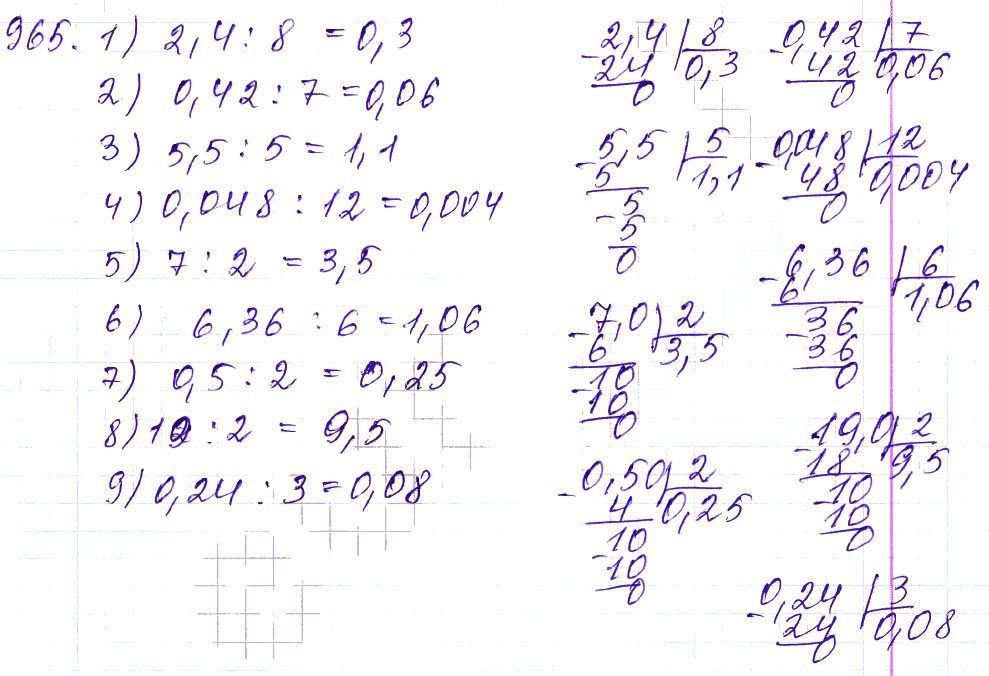 965. 1) 2,4 : 8 = 0,3
2) 0,42 : 7 = 0,06
3) 5,5 : 5 = 1,1
4) 0,048 : 12 = 0,004
5) 7 : 2 = 3,5
6) 6,36 : 6 = 1,06
7) 0,5 : 2 = 0,25
8) 19 : 2 = 9,5
9) 0,24 : 3 = 0,08
-2,4 | 8
24 0,3
0
-0,42 | 7
42 0,06
0
-5,5 | 5
5 1,1
-5
5
0
-0,048 | 12
48 0,004
0
-7,0 | 2
6 3,5
-10
10
0
-6,36 | 6
6 1,06
-36
36
0
-0,50 | 2
4 0,25
-10
10
0
-19,0 | 2
18 9,5
-10
10
0
-0,24 | 3
24 0,08
0